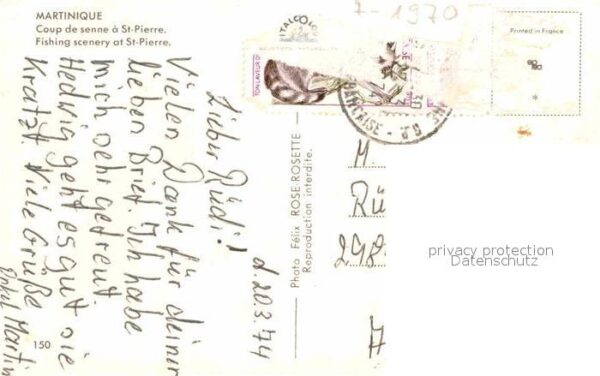 MARTINIQUE
Coup de senne à St-Pierre.
Fishing scenery at St-Pierre.
7-1970
Printed in France
d. 20.3.74
Lieber Rüdi!
Vielen Dank für deinen
lieben Brief. Ich habe
mich sehr gefreut
Hedwig geht es gut sie
Kratzt. Viele Grüße
Onkel Martin
Photo Félix ROSE-ROSETTE
Reproduction interdite.
H.
Rü
298
A
privacy protection
Datenschutz
150